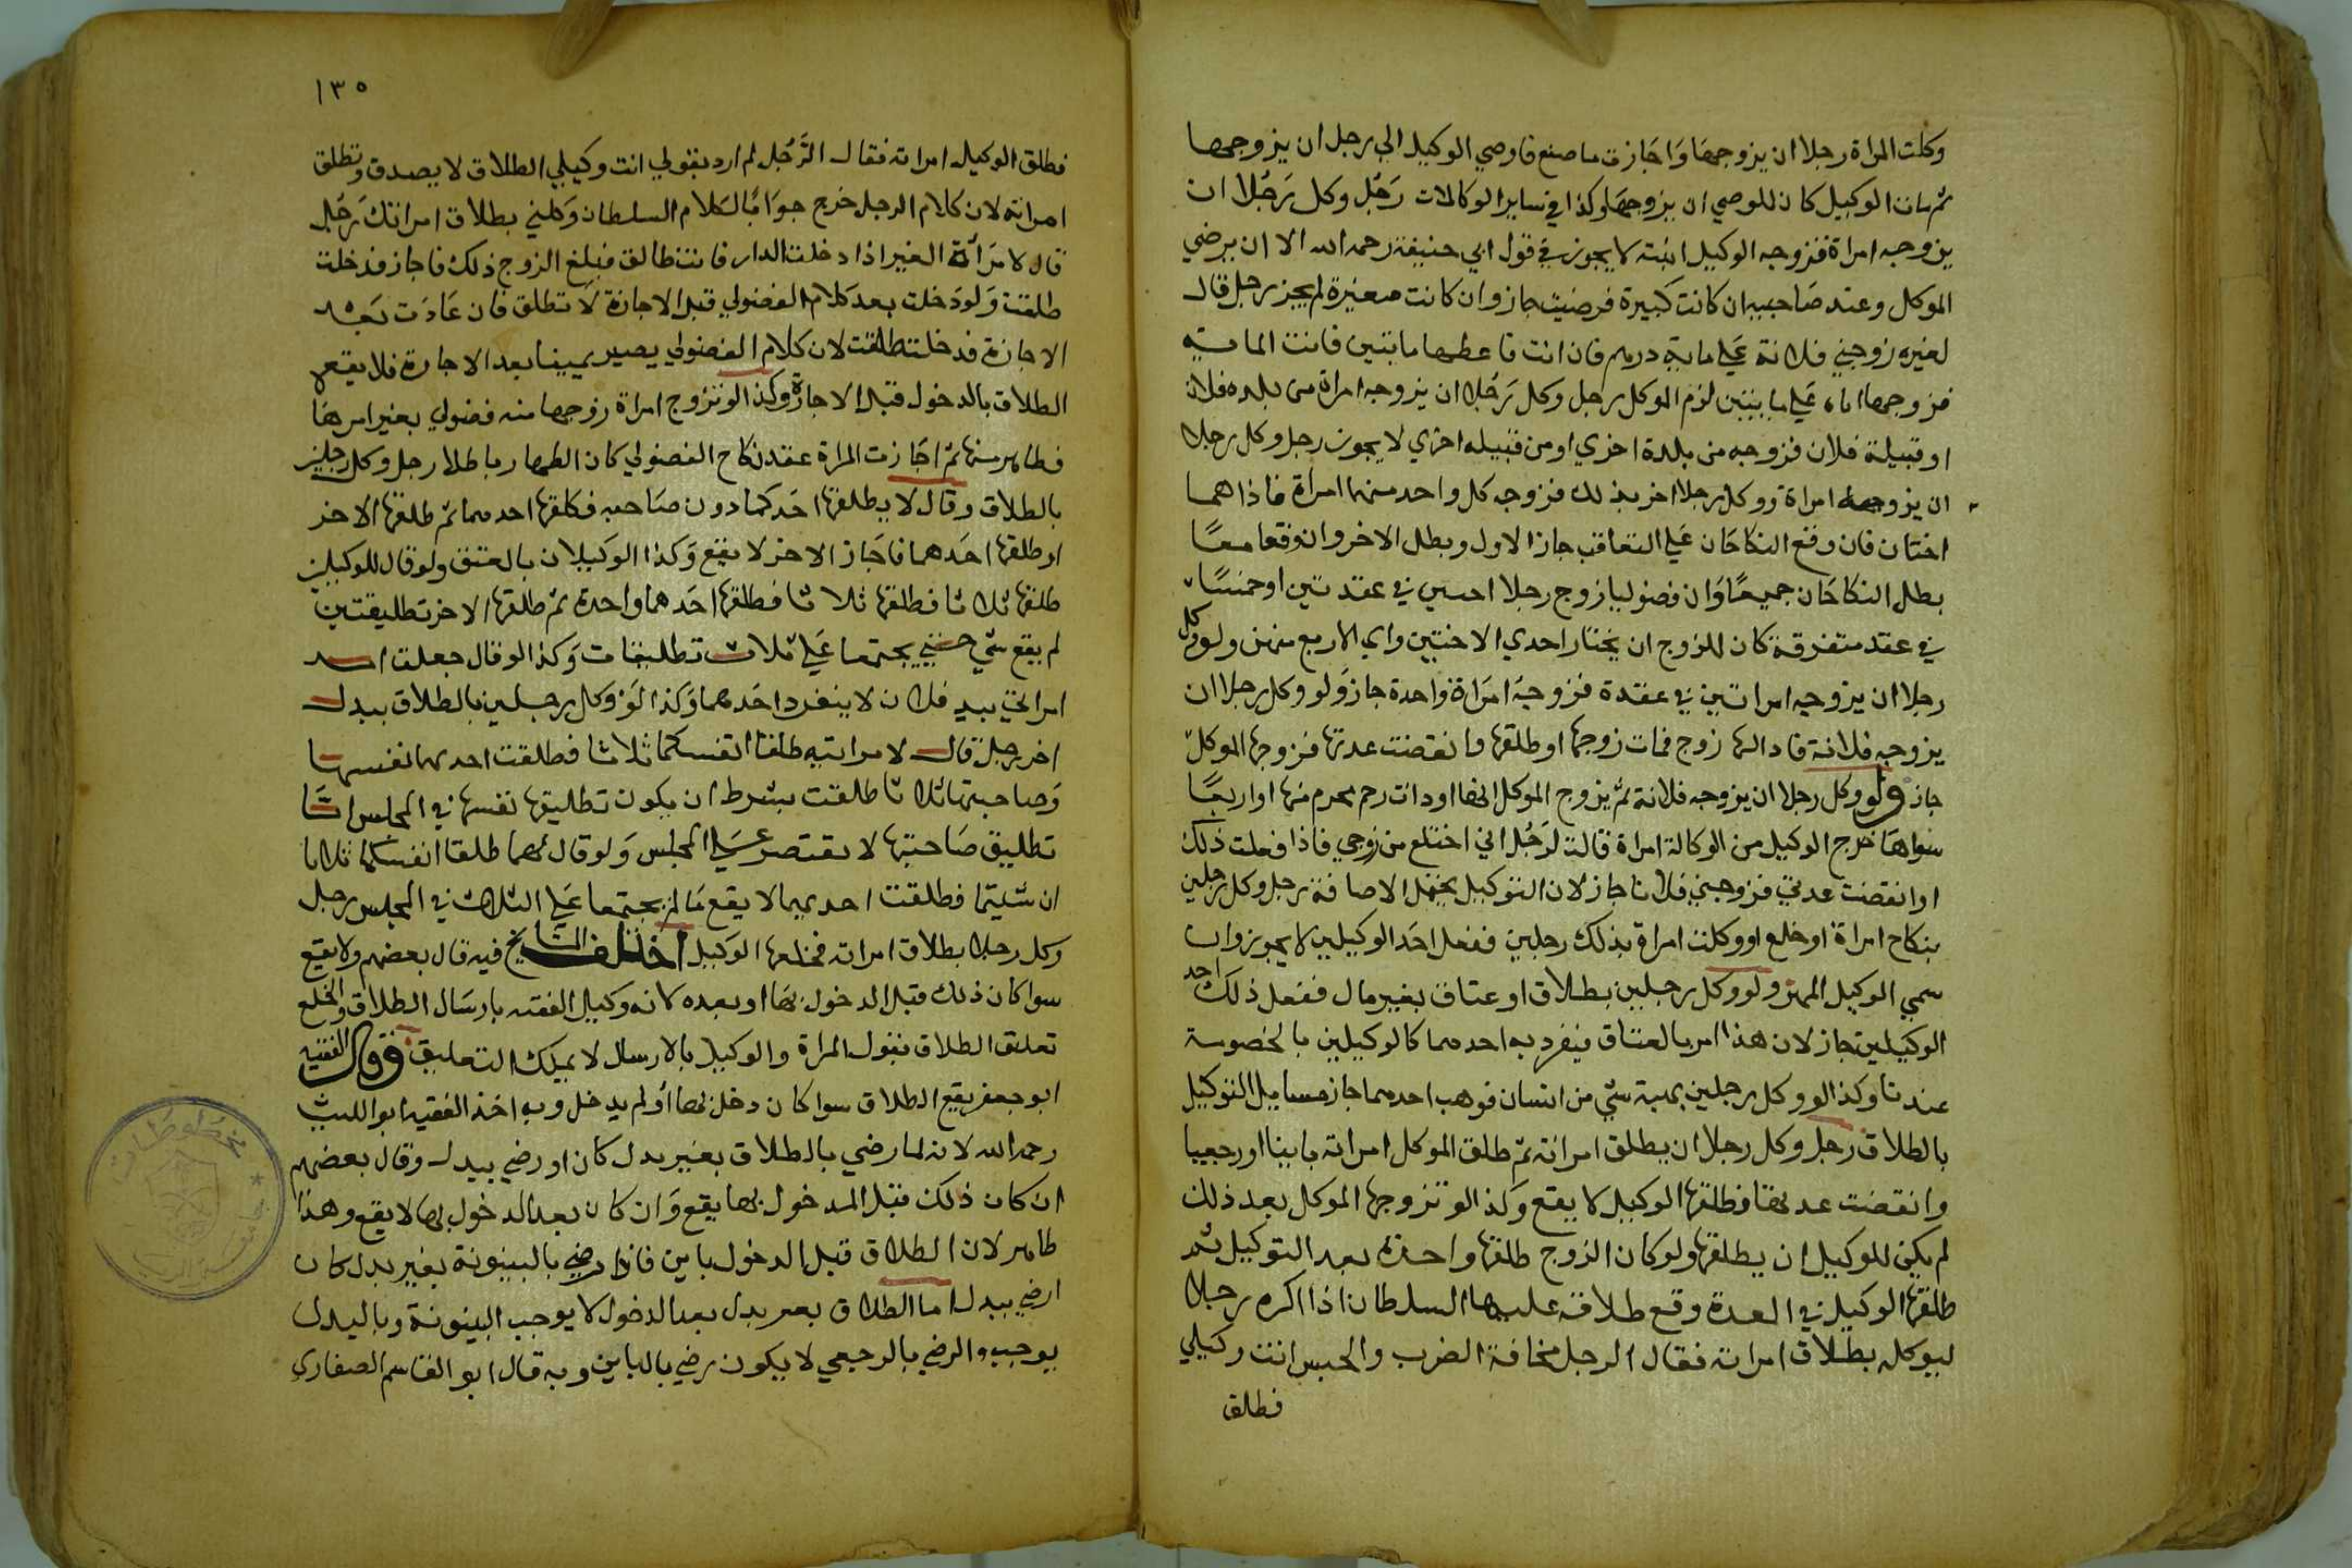 وكلت المراة رجلا ان يزوجها واجازت ما صنع فاوصي الوكيل الي رجل ان يزوجها
ثم مات الوكيل كان للوصي ان يزوجها وكذا في ساير الوكالات رجل وكل رجلا ان
يزوجه امراة فزوجه الوكيل ابنته لا يجوز في قول ابي حنيفة رحمه الله الا ان يرضي
الموكل وعند صاحبيه ان كانت كبيرة فرضيت جاز وان كانت صغيرة لم يجز رجل قال
لغيره زوجني فلانة علي ماية درهم فان ابت فاعطها مايتين فابت الماية
فزوجها اياه علي مايتين لزم الموكل رجل وكل رجلا ان يزوجه امراة من بلده فلان
او قبيلة فلان فزوجه من بلدة اخري او من قبيله اخري لا يجوز رجل وكل رجلا
ان يزوجه امراة ووكل رجلا اخر بذلك فزوجه كل واحد منهما امراة فاذا هما
اختان فان وقع النكاحان علي التعاقب جاز الاول وبطل الاخر وان وقعا معا
بطل النكاحان جميعا وان فضوليا زوج رجلا اختين في عقدتين او خمسا
في عقد متفرقة كان للزوج ان يختار احدي الاختين واي الاربع منهن ولو وكل
رجلا ان يزوجه امراتين في عقدة فزوجه امراة واحدة جاز ولو وكل رجلا ان
يزوجه فلانة فاذا لها زوج فمات زوجها او طلقها وانقضت عدتها فزوجها الموكل
جاز ولو وكل رجلا ان يزوجه فلانة ثم يزوج الموكل اختها او ذات رحم محرم منها او اربعا
سواها خرج الوكيل من الوكالة امراة قالت لرجل اني اختلع من زوجي فاذا فعلت ذلك
او انقضت عدتي فزوجني فلانا جاز لان التوكيل يحتمل الاضافة رجل وكل رجلين
بنكاح امراة او خلع او وكلت امراة بذلك رجلين ففعل احد الوكيلين لا يجوز وان
سمي الوكيل المهر ولو وكل رجلين بطلاق او عتاق بغير مال ففعل ذلك احد
الوكيلين جاز لان هذا امر بالعتاق فيفرد به احدهما كالوكيلين بالخصومة
عندنا وكذا لو وكل رجلين بهبة شي من انسان فوهب احدهما جاز مسايل التوكيل
بالطلاق رجل وكل رجلا ان يطلق امراته ثم طلق الموكل امراته باينا او رجعيا
وانقضت عدتها فطلقها الوكيل لا يقع وكذا لو تزوجها الموكل بعد ذلك
لم يكن للوكيل ان يطلقها ولو كان الزوج طلقها واحدة بعد التوكيل ثم
طلقها الوكيل في العدة وقع طلاقه عليها السلطان اذا اكره رجلا
ليوكله بطلاق امراته فقال الرجل مخافة الضرب والحبس انت وكيلي
فطلق
١٣٥
فطلق الوكيل امراته فقال الرجل لم ارد بقولي انت وكيلي الطلاق لا يصدق وتطلق
امراته لان كلام الرجل خرج جوابا لكلام السلطان وكلني بطلاق امراتك رجل
قال لامراة الغير اذا دخلت الدار فانت طالق فبلغ الزوج ذلك فاجاز فدخلت
طلقت ولو دخلت بعد كلام الفضولي قبل الاجازة لا تطلق فان عادت بعد
الاجازة فدخلت طلقت لان كلام الفضولي يصير يمينا بعد الاجازة فلا يقع
الطلاق بالدخول قبل الاجازة وكذا لو تزوج امراة زوجها منه فضولي بغير امرها
فظاهر منها ثم اجازت المراة عقد نكاح الفضولي كان الظهار باطلا رجل وكل رجلين
بالطلاق وقال لا يطلقها احدكما دون صاحبه فطلقها احدهما ثم طلقها الاخر
او طلقها احدهما فاجاز الاخر لا يقع وكذا الوكيلان بالعتق ولو قال للوكيلين
طلقها ثلاثا فطلقها ثلاثا فطلقها احدهما واحدة ثم طلقها الاخر تطليقتين
لم يقع شي حتي يجتمعا علي ثلاث تطليقات وكذا لو قال جعلت امر
امراتي بيد فلان لا ينفرد احدهما وكذا لو وكل رجلين بالطلاق ببدل
اخر رجل قال لامراتيه طلقا انفسكما ثلاثا فطلقت احديهما نفسها
وصاحبتها ثلاثا طلقت بشرط ان يكون تطليقها نفسها في المجلس اما
تطليق صاحبتها لا يقتصر علي المجلس ولو قال لهما طلقا انفسكما ثلاثا
ان شيتما فطلقت احديهما لا يقع ما لم يجتمعا علي الثلاث في المجلس رجل
وكل رجلا بطلاق امراته فخلعها الوكيل اختلف المشايخ فيه قال بعضهم ولا يقع
سوا كان ذلك قبل الدخول بها او بعده لانه وكيل الفقه بارسال الطلاق والخلع
تعليق الطلاق بقول المراة والوكيل بالارسال لا يملك التعليق وقال الفقيه
ابو جعفر يقع الطلاق سوا كان دخل بها او لم يدخل وبه اخذ الفقيه ابو الليث
رحمه الله لانه لما رضي بالطلاق بغير بدل كان او رضي ببدل وقال بعضهم
ان كان ذلك قبل المدخول بها يقع وان كان بعد الدخول بها لا يقع وهذا
ظاهر لان الطلاق قبل الدخول باين فاذا رضي بالبينونة بغير بدل كان
ارضي ببدل اما الطلاق بغير بدل بعد الدخول لا يوجب البينونة وبالبدل
يوجب والرضي بالرجعي لا يكون رضي بالباين وبه قال ابو القاسم الصفار